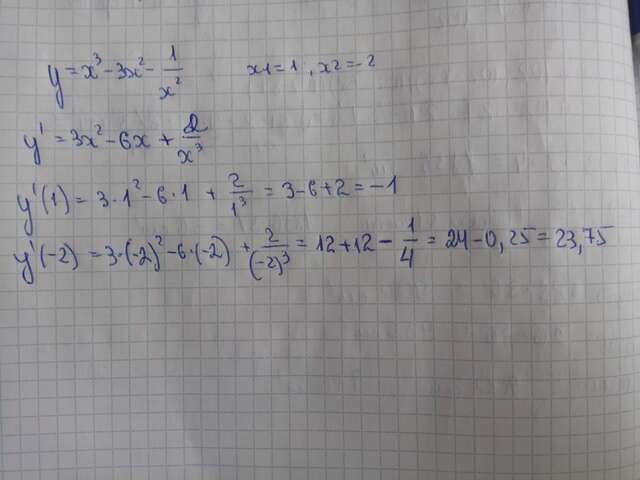 y = x³ - 3x² - 1/x² x1 = 1, x2 = -2
y' = 3x² - 6x + 2/x³
y'(1) = 3·1² - 6·1 + 2/1³ = 3 - 6 + 2 = -1
y'(-2) = 3·(-2)² - 6·(-2) + 2/(-2)³ = 12 + 12 - 1/4 = 24 - 0,25 = 23,75